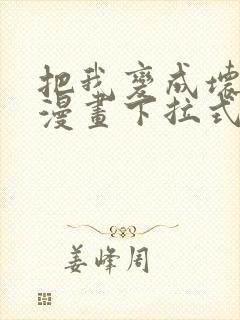 把我变成壞
漫畫下拉式
姜峰周